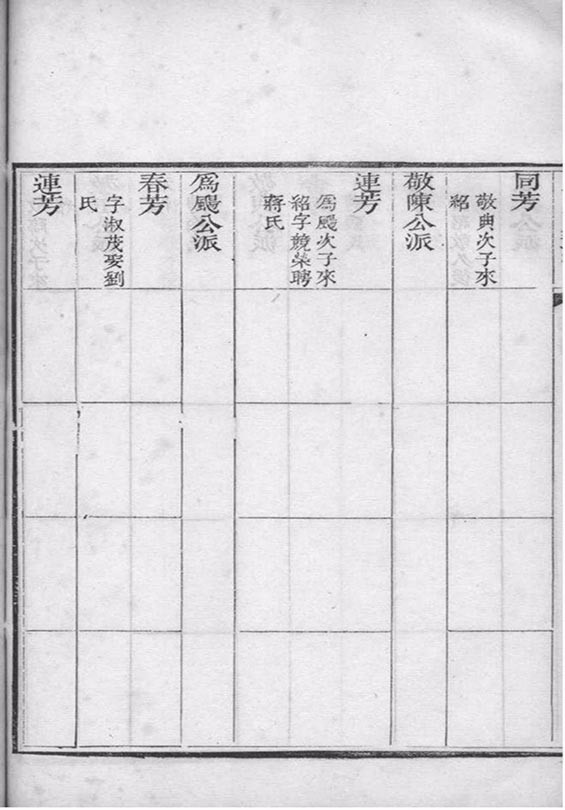 同芳
敬典次子來
紹
敬陳公派
連芳
爲颺次子來
紹字競榮聘
蔣氏
爲颺公派
春芳
字淑茂娶劉
氏
連芳